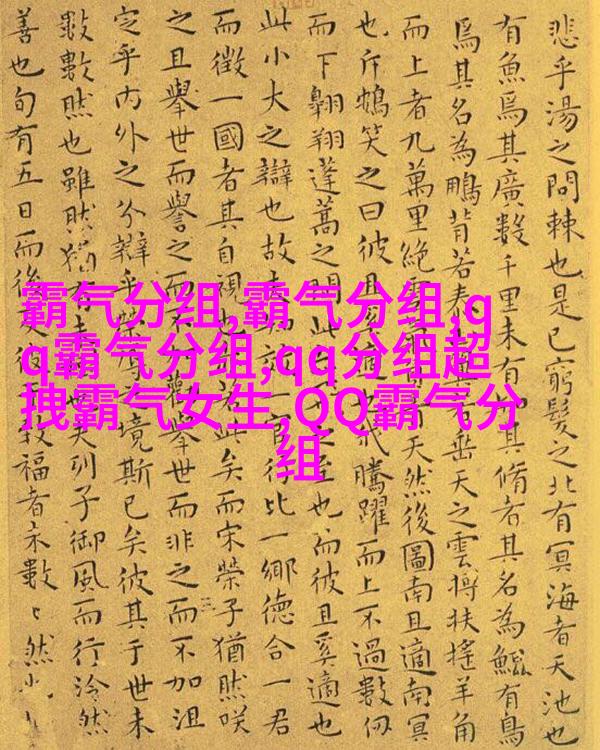 霸气分组,霸气分组,q
q霸气分组,qq分组超
拽霸气女生,QQ霸气分
组
悲乎湯之問棘也是已窮髮之北有冥海者天池也
有魚焉其廣數千里未有其脩者其名為鯤有鳥
焉其名為鵬背若天之雲摶扶搖羊角
而上者九萬里絕雲天然後圖南且適南冥
也斥鴳笑之曰彼且適也騰躍而上不過數仞
而下翱翔蓬蒿之間此之至也而彼且奚適也
此小大之辯也故一官行比一鄉德合一君
而徵一國者其自視也此矣而宋榮子猶然咲
之且舉世而譽之而不勸舉世而非之而不加沮
定乎內外之分辯乎榮境斯已矣彼其于世未
數數然也雖然猶有未夫列子御風而行泠然
善也旬有五日而後反彼致福者未數〻然也